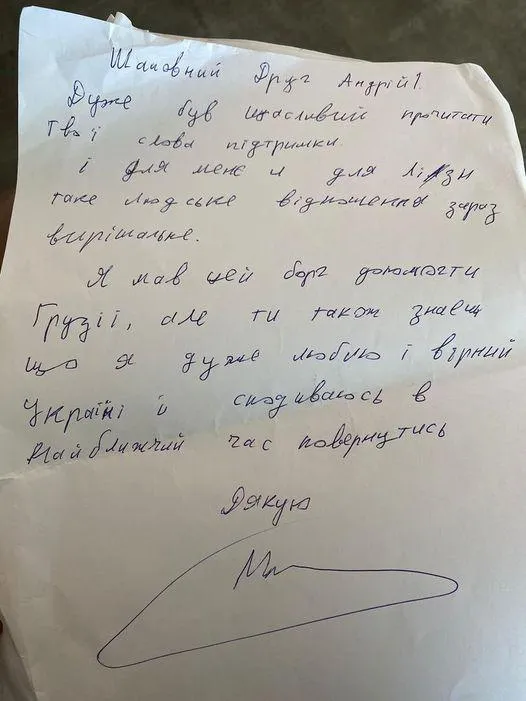 Шановний Друг Андрій!
Дуже був щасливий прочитати
твої слова підтримки.
і для мене й для Лізи
таке людське відношення зараз
вирішальне.
Я мав цей борг допомогти
Грузії, але ти також знаєш
що я дуже люблю і вірний
Україні й сподиваюсь в
Найближчий час повернутись
Дякую